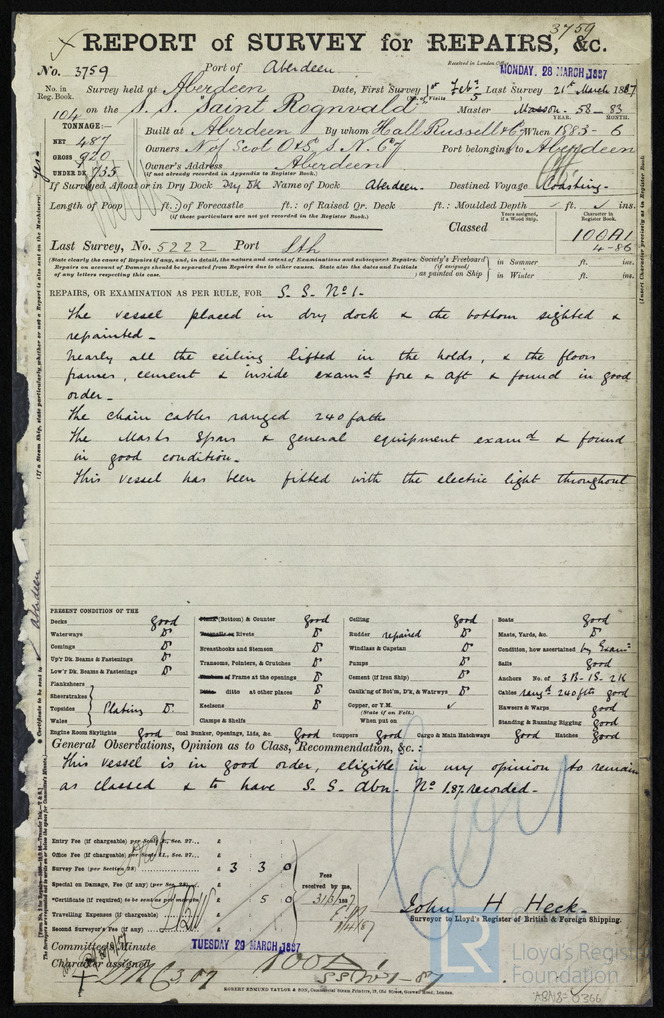 3759
REPORT of SURVEY for REPAIRS, &c.
No. 3759 Port of Aberdeen Received in London Office MONDAY, 28 MARCH, 1887
No. in Reg. Book. Survey held at Aberdeen Date, First Survey 1st Feby Last Survey 21st March 1887
104 on the S. S. "Saint Rognvald" (No. of Visits 5 Master Masson - 58 - 83 YEAR. MONTH.
TONNAGE:—
NET 487
GROSS 920
UNDER DK 735
Built at Aberdeen By whom Hall Russell & Co When 1883 - 6
Owners N. of Scot O & S. S. N. Cy Port belonging to Aberdeen
Owner's Address Aberdeen
(if not already recorded in Appendix to Register Book.)
If Surveyed Afloat or in Dry Dock Dry Dk Name of Dock Aberdeen. Destined Voyage Coasting.
Length of Poop ft.: of Forecastle ft.: of Raised Qr. Deck ft.: Moulded Depth ft. ins.
(if these particulars are not yet recorded in the Register Book.)
Classed Years assigned, if a Wood Ship. Character in Register Book.
100A1
4-86
Last Survey, No. 5222 Port Lth
(State clearly the cause of Repairs if any, and, in detail, the nature and extent of Examinations and subsequent Repairs.
Repairs on account of Damage should be separated from Repairs due to other causes. State also the dates and Initials
of any letters respecting this case.
Society's Freeboard (if assigned) as painted on Ship in Summer ft. ins.
in Winter ft. ins.
REPAIRS, OR EXAMINATION AS PER RULE, FOR S. S. No 1.
The vessel placed in dry dock & the bottom sighted &
repainted -
Nearly all the ceiling lifted in the holds, & the floors
frames, cement & inside examd fore & aft & found in good
order -
The chain cables ranged 240 faths
The Masts Spars & general equipment examd & found
in good condition -
This vessel has been fitted with the electric light throughout
PRESENT CONDITION OF THE
Decks good
Waterways Do
Comings Do
Up'r Dk. Beams & Fastenings Do
Low'r Dk. Beams & Fastenings Do
Plankshears
Sheerstrakes
Topsides Plating Do
Wales
Engine Room Skylights good
Plank (Bottom) & Counter good
Treenails or Rivets Do
Breasthooks and Stemson Do
Transoms, Pointers, & Crutches Do
Timbers of Frame at the openings Do
Ditto. ditto at other places Do
Keelsons Do
Clamps & Shelfs
Coal Bunker, Openings, Lids, &c. Good
Ceiling good
Rudder repaired Do
Windlass & Capstan Do
Pumps Do
Cement (if Iron Ship) Do
Caulk'ng of Bot'm, D'k, & Watrwys Do
Copper, or Y.M.
(State if on Felt.)
When put on
Scuppers good Cargo & Main Hatchways good
Boats good
Masts, Yards, &c. Do
Condition, how ascertained by Exam
Sails good
Anchors No. of 3B-1S-2K
Cables rangd 240 fths good
Hawsers & Warps good
Standing & Running Rigging good
Hatches Good
General Observations, Opinion as to Class, Recommendation, &c.:
This vessel is in good order, eligible in my opinion to remain
as classed & to have S. S. Abn. No 1.87. recorded -
Entry Fee (if chargeable) per Scale I., Sec. 27... £
Office Fee (if chargeable) per Scale II., Sec. 27... £
Survey Fee (per Section 28) £ 3 3 0
Special on Damage, Fee (if any) (per Sec. 28) £
*Certificate (if required) to be sent as per margin £ 5 0
Travelling Expenses (if chargeable) £
Second Surveyor's Fee (if any) £
Fees received by me,
31/3/1887
John H Heck
Surveyor to Lloyd's Register of British & Foreign Shipping.
Committee's Minute TUESDAY 29 MARCH, 1887
Character assigned 100A1
ROBERT EDMUND TAYLOR & SON, Commercial Steam Printers, 19, Old Street, Goswell Road, London.
LR Lloyd's Register Foundation
ABN8-0366
(If a Steam Ship, state particularly whether or not a Report is also sent on the Machinery) Yes
* Certificate to be sent to Aberdeen
(Insert Character precisely as in Register Book.)